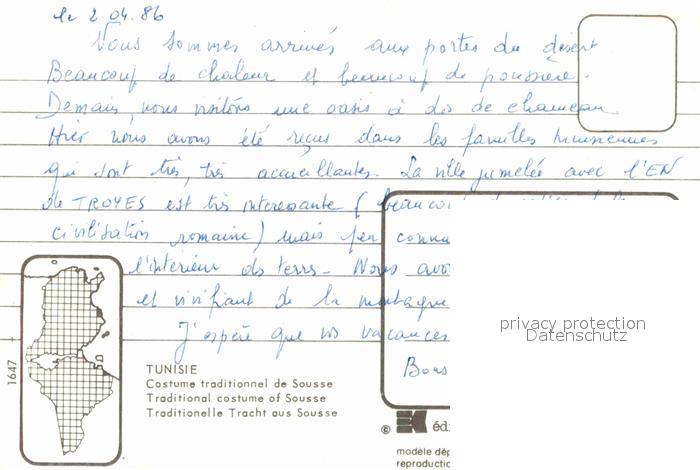 le 2.04.86
Nous sommes arrivés aux portes du désert
Beaucoup de chaleur et beaucoup de poussière.
Demain, nous visitons une oasis à dos de chameau
Hier nous avons été reçus dans les familles tunisiennes
qui sont très, très accueillantes. La ville jumelée avec l'EN
de TROYES est très interessante (beaucou
civilisation romaine) mais peu connu
l'intérieur des terres. Nous avo
et vivifiant de la montagne
J'espère que vos vacances
Bons
privacy protection
Datenschutz
1647
TUNISIE
Costume traditionnel de Sousse
Traditional costume of Sousse
Traditionelle Tracht aus Sousse
© EK édi
modèle dép
reproductio